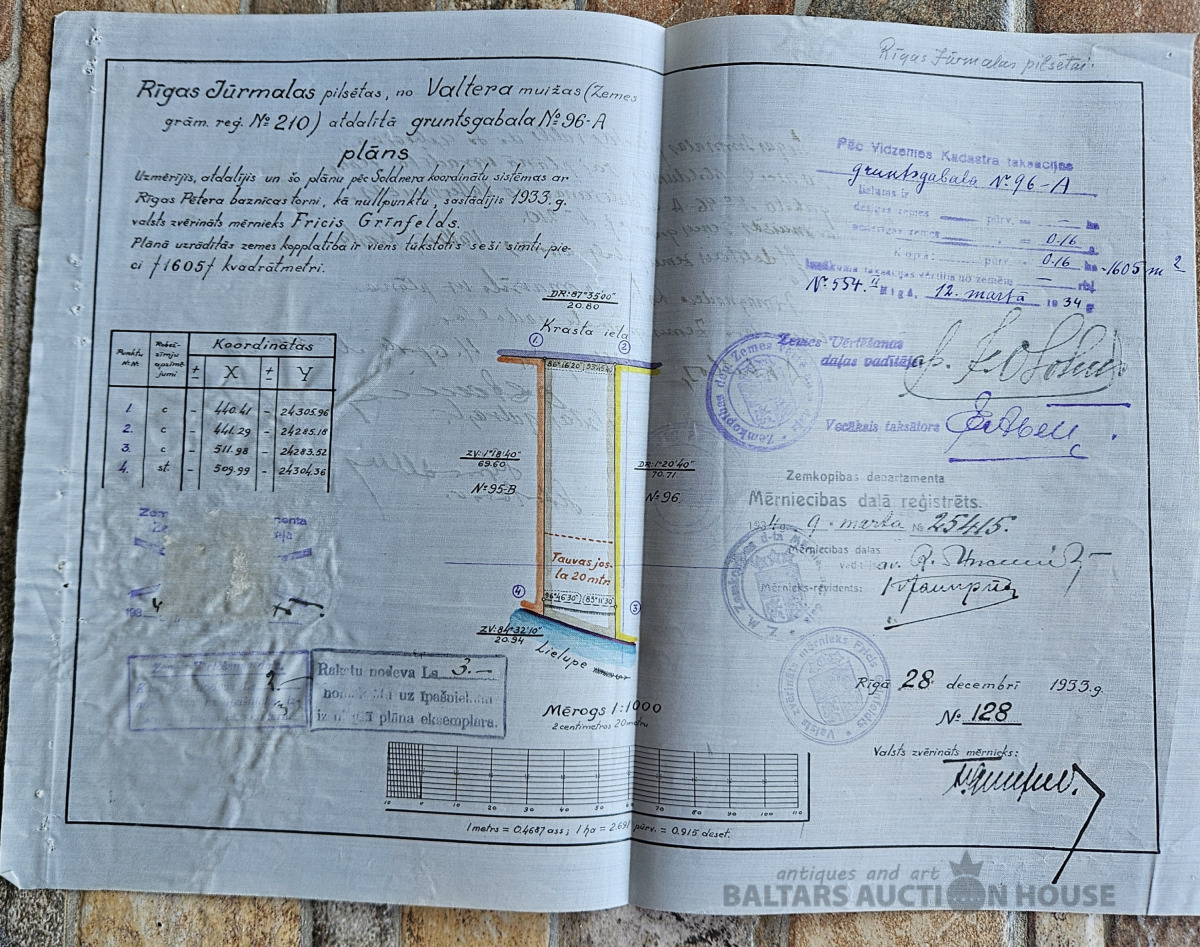 Rīgas Jūrmalas pilsētai.
Rīgas Jūrmalas pilsētas, no Valtera muižas (Zemes
grām. reģ. № 210) atdalītā gruntsgabala № 96-A
plāns
Uzmērījis, atdalījis un šo plānu pēc Soldnera koordinātu sistēmas ar
Rīgas Pētera baznīcas torni, kā nullpunktu, sastādījis 1933. g.
valsts zvērināts mērnieks Fricis Grīnfelds.
Plānā uzrādītās zemes kopplatība ir viens tūkstots seši simti pie-
ci /1605/ kvadrātmetri.
Punktu №№
Robež-
zīmju
apzīmē-
jumi
Koordinātas
± X ± Y
1. c - 440.41 - 24305.96
2. c - 441.29 - 24285.18
3. c - 511.98 - 24283.52
4. st. - 509.99 - 24304.36
DR:87°35'00"
20.80
Krasta iela
1 2
86°16'20"
ZV:1°18'40"
69.60
№ 95-B
DR:1°20'40"
70.71
№ 96.
Tauvas jos-
la 20 mtr.
96°46'30" 83°11'30"
4 3
ZV:84°32'10"
20.94
Lielupe
Mērogs 1:1000
2 centimetros 20 metru
10 0 10 20 30 40 50 60 70 80 90 100 110
1 metrs = 0.4687 ass; 1 ha = 2.691 pūrv. = 0.915 deset.
193 4
Rakstu nodeva Ls 3.-
uz īpašniekam
plāna eksemplara.
Pēc Vidzemes Kadastra taksācijas
gruntsgabala № 96-A
lielums ir
derīgas zemes pūrv. = - ha
0.16
Kopā: pūrv. = 0.16 ha - 1605 m²
№ 554. II Rīgā, 12. martā 1934 g
Zemes Vērtēšanas
daļas vadītājs
Vecākais taksators
Zemkopības departamenta
Mērniecības daļā reģistrēts.
1934 g. 9. martā № 25415.
Mērniecības daļas
Mērnieks-revidents:
Rīgā 28 decembrī 1933. g.
№ 128
Valsts zvērināts mērnieks:
antiques and art
BALTARS AUCTION HOUSE